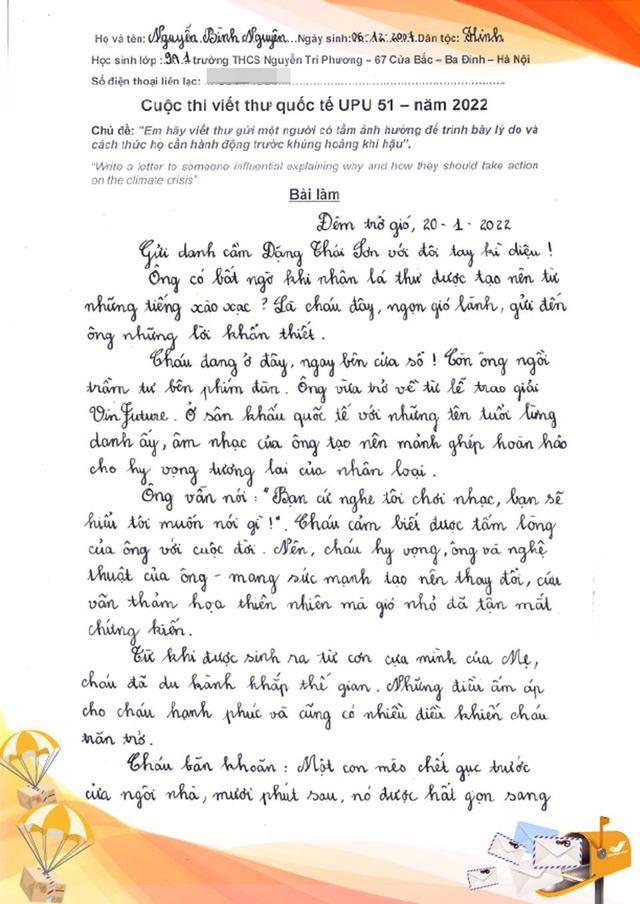 Họ và tên: Nguyễn Bình Nguyên Ngày sinh: 06.12.2007 Dân tộc: Kinh
Học sinh lớp: 9A1 trường THCS Nguyễn Tri Phương – 67 Cửa Bắc – Ba Đình – Hà Nội
Số điện thoại liên lạc:
Cuộc thi viết thư quốc tế UPU 51 – năm 2022
Chủ đề: "Em hãy viết thư gửi một người có tầm ảnh hưởng để trình bày lý do và
cách thức họ cần hành động trước khủng hoảng khí hậu".
"Write a letter to someone influential explaining why and how they should take action
on the climate crisis"
Bài làm
Đêm trở gió, 20-1-2022
Gửi danh cầm Đặng Thái Sơn với đôi tay kì diệu!
Ông có bất ngờ khi nhận lá thư được tạo nên từ
những tiếng xào xạc? Là cháu đây, ngọn gió lành, gửi đến
ông những lời khẩn thiết.
Cháu đang ở đây, ngay bên cửa sổ! Còn ông ngồi
trầm tư bên phím đàn. Ông vừa trở về từ lễ trao giải
VinFuture. Ở sân khấu quốc tế với những tên tuổi lừng
danh ấy, âm nhạc của ông tạo nên mảnh ghép hoàn hảo
cho hy vọng tương lai của nhân loại.
Ông vẫn nói: "Bạn cứ nghe tôi chơi nhạc, bạn sẽ
hiểu tôi muốn nói gì!". Cháu cảm biết được tấm lòng
của ông với cuộc đời. Nên, cháu hy vọng, ông và nghệ
thuật của ông - mang sức mạnh tạo nên thay đổi, cứu
vãn thảm họa thiên nhiên mà gió nhỏ đã tận mắt
chứng kiến.
Từ khi được sinh ra từ cơn cựa mình của Mẹ,
cháu đã du hành khắp thế gian. Những điều ấm áp
cho cháu hạnh phúc và cũng có nhiều điều khiến cháu
trăn trở.
Cháu băn khoăn: Một con mèo chết gục trước
cửa ngôi nhà, mươi phút sau, nó được hất gọn sang